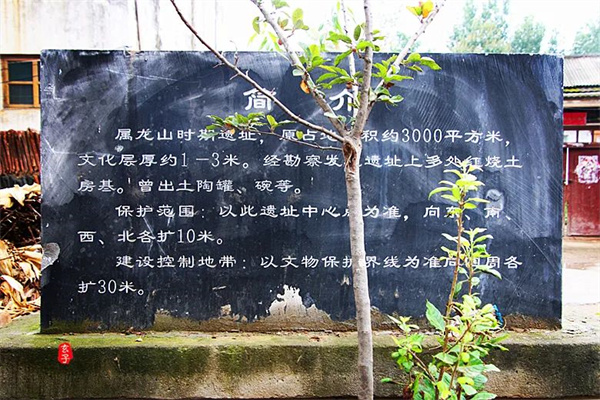 简介
属龙山时期遗址，原占 积约3000平方米，
文化层厚约1－3米。经勘察发 遗址上多处红烧土
房基。曾出土陶罐、碗等。
保护范围：以此遗址中心点为准，向东、南、
西、北各扩10米。
建设控制地带：以文物保护界线为准向四周各
扩30米。
玄子